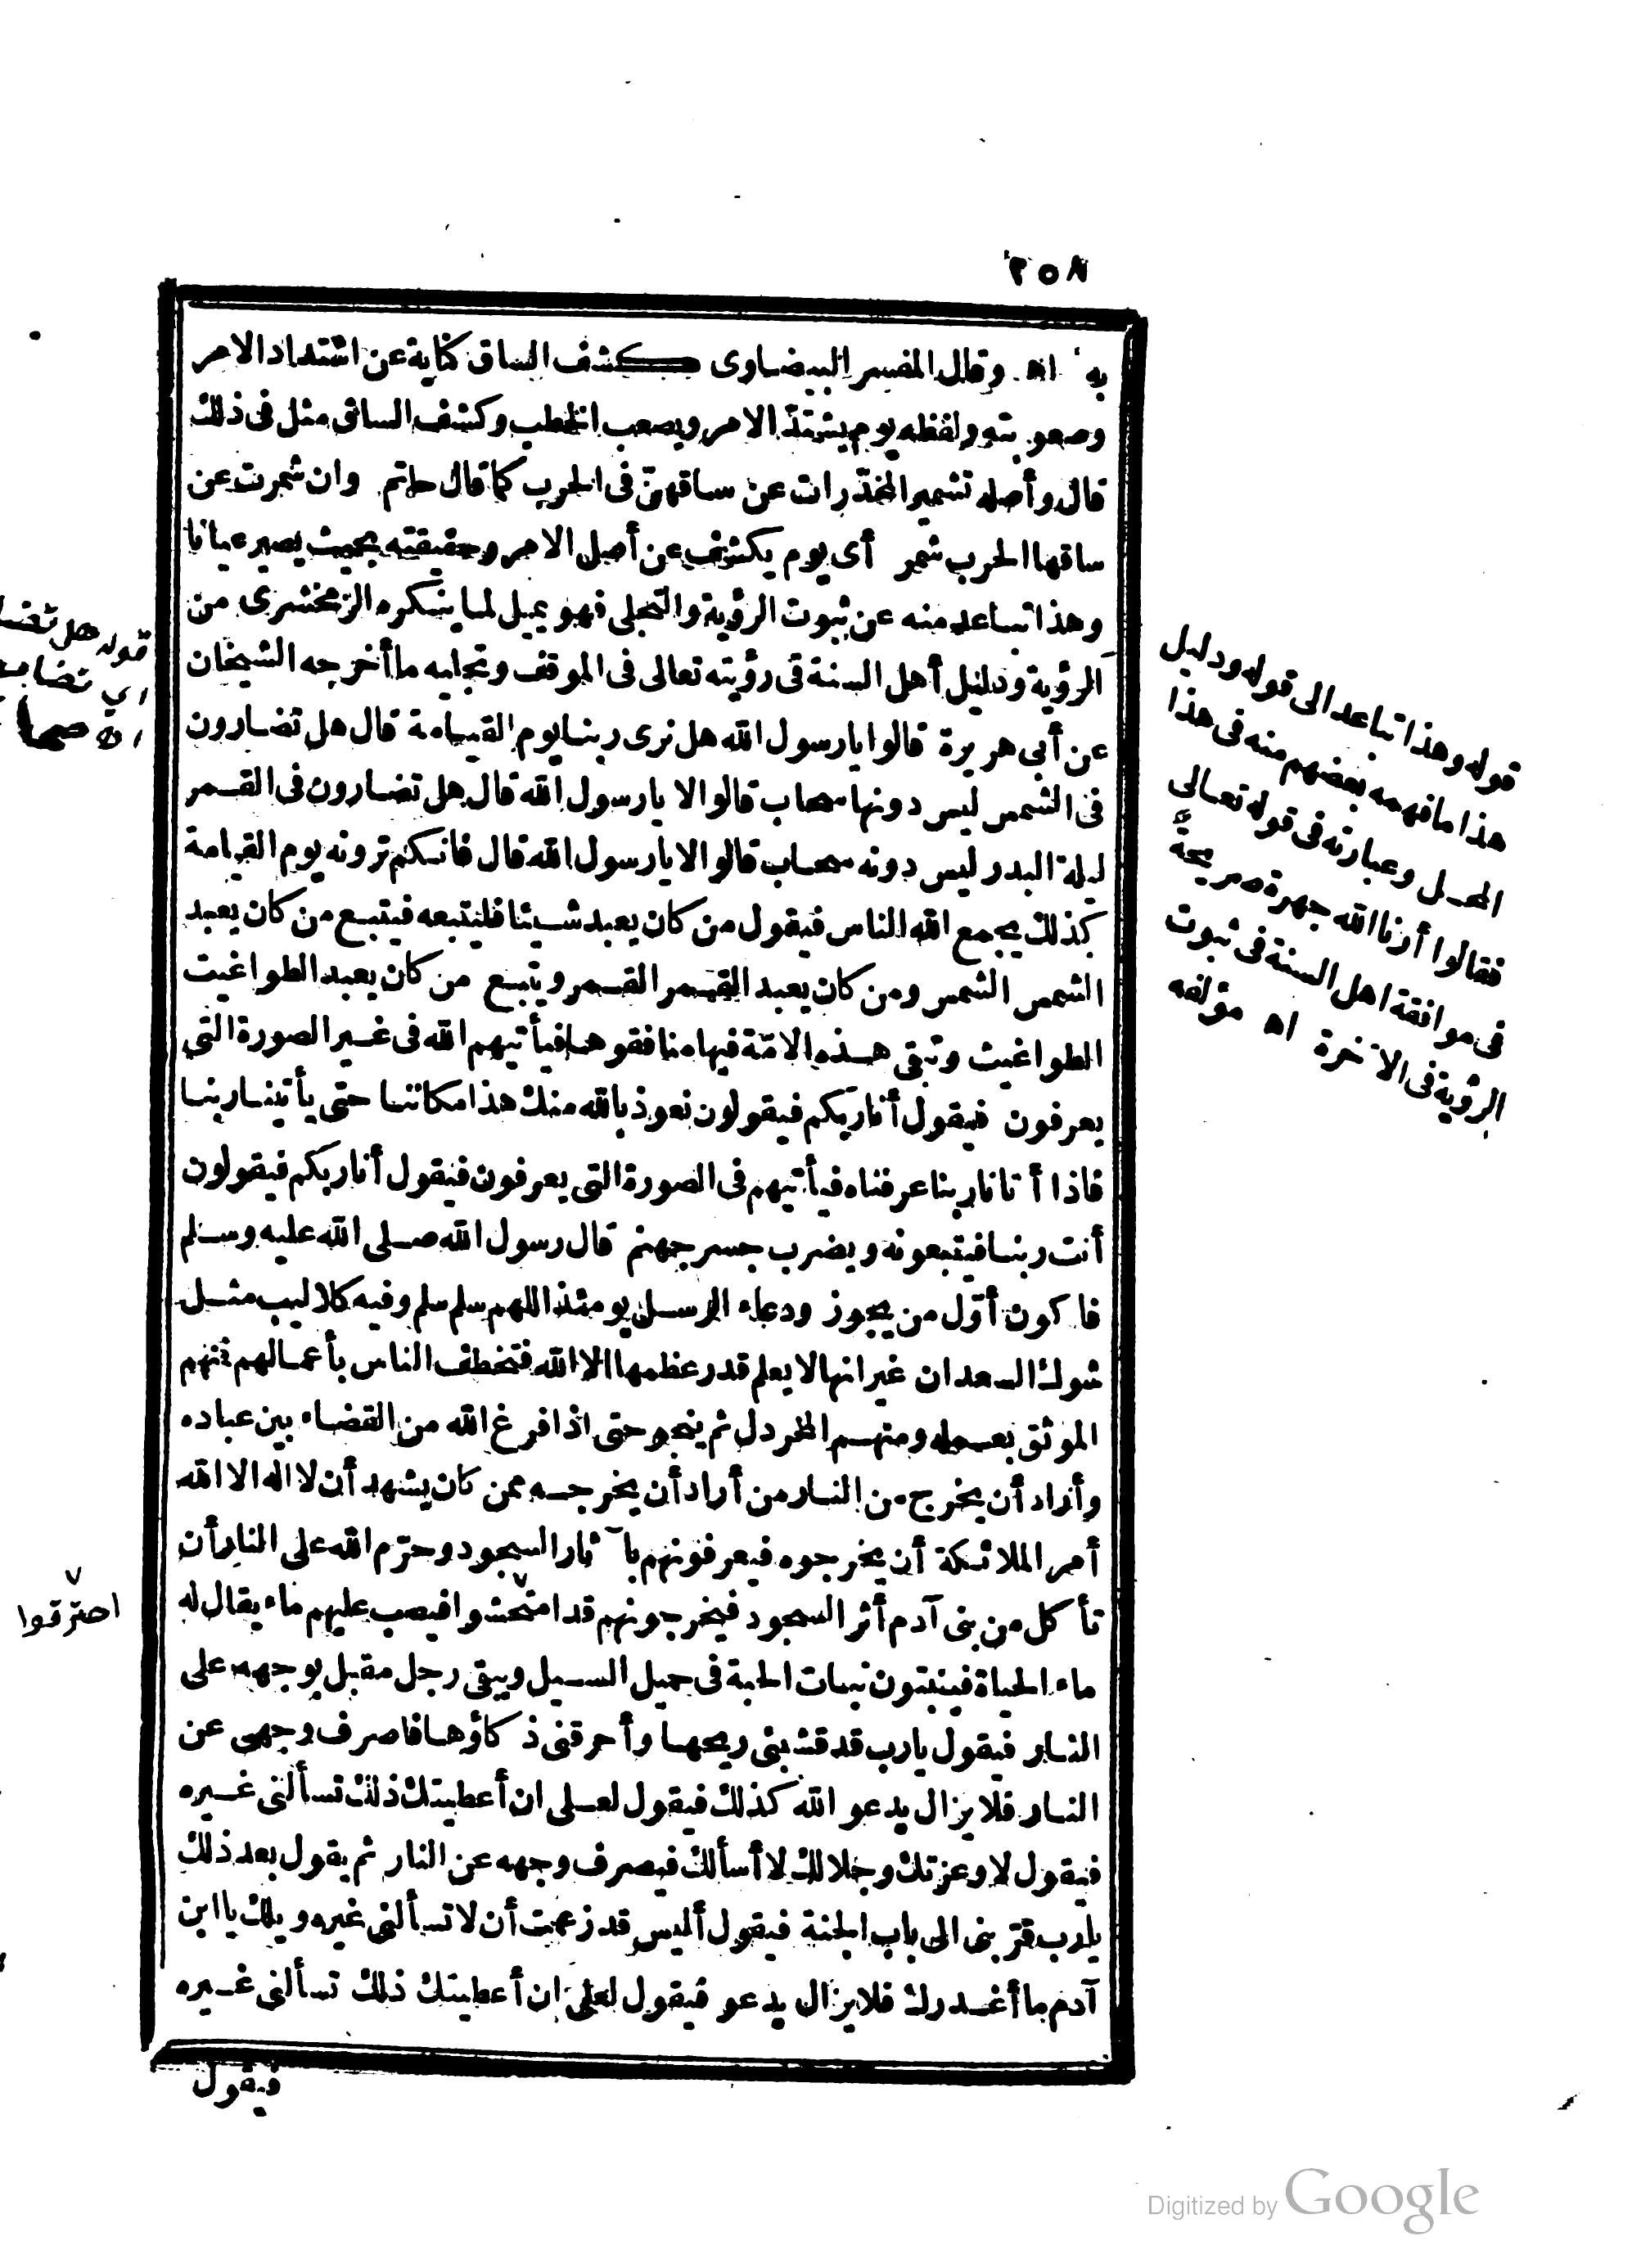 ٢٥٨
به اه وقال المفسر البيضاوى كشف الساق كناية عن اشتداد الامر
وصعوبته ولفظه يوم يشتدّ الامر ويصعب الخطب وكشف الساق مثل فى ذلك
قال وأصله تشمير المخدّرات عن ساقهنّ فى الحرب كما قال حاتم وان شمرت عن
ساقها الحرب شمر أى يوم يكشف عن أصل الامر وحقيقته بحيث يصير عيانا
وهذا تباعد منه عن ثبوت الرؤية والتجلى فهو يميل لما ينكره الزمخشرى من
الرؤية ودليل أهل السنة فى رؤيته تعالى فى الموقف وتجليه ما أخرجه الشيخان
عن أبى هريرة قالوا يارسول الله هل نرى ربنا يوم القيامة قال هل تضارون
فى الشمس ليس دونها سحاب قالوا لا يارسول الله قال هل تضارون فى القمر
ليلة البدر ليس دونه سحاب قالوا لا يارسول الله قال فانكم ترونه يوم القيامة
كذلك يجمع الله الناس فيقول من كان يعبد شيئا فليتبعه فيتبع من كان يعبد
الشمس الشمس ومن كان يعبد القمر القمر ويتبع من كان يعبد الطواغيت
الطواغيت وتبقى هذه الامّة فيها منافقوها فيأتيهم الله فى غير الصورة التى
يعرفون فيقول أنا ربكم فيقولون نعوذ بالله منك هذا مكاننا حتى يأتينا ربنا
فاذا أتانا ربنا عرفناه فيأتيهم فى الصورة التى يعرفون فيقول أنا ربكم فيقولون
أنت ربنا فيتبعونه ويضرب جسر جهنم قال رسول الله صلى الله عليه وسلم
فاكون أوّل من يجوز ودعاء الرسل يومئذ اللهم سلم سلم وفيه كلاليب مثل
شوك السعدان غير انها لا يعلم قدر عظمها الا الله فتخطف الناس بأعمالهم فمنهم
الموثق بعمله ومنهم المخردل ثم ينجو حتى اذا فرغ الله من القضاء بين عباده
وأراد أن يخرج من النار من أراد أن يخرجه ممن كان يشهد أن لا اله الا الله
أمر الملائكة أن يخرجوه فيعرفونهم بآثار السجود وحرّم الله على النار أن
تأكل من بنى آدم أثر السجود فيخرجونهم قد امتحشوا فيصب عليهم ماء يقال له
ماء الحياة فينبتون نبات الحبة فى حميل السيل ويبقى رجل مقبل بوجهه على
النار فيقول يارب قد قشبنى ريحها وأحرقنى ذكاؤها فاصرف وجهى عن
النار فلا يزال يدعو الله كذلك فيقول لعلى ان أعطيتك ذلك تسألنى غيره
فيقول لا وعزتك وجلالك لا أسألك فيصرف وجهه عن النار ثم يقول بعد ذلك
يارب قرّبنى الى باب الجنة فيقول أليس قد زعمت أن لا تسألنى غيره ويلك يا ابن
آدم ما أغدرك فلا يزال يدعو فيقول لعلى ان أعطيتك ذلك تسألنى غيره
فيقول
قوله وهذا تباعد الى قوله ودليل
هذا مافهمه بعضهم منه فى هذا
المحل وعبارته فى قوله تعالى
فقالوا أرنا الله جهرة صريحة
فى موافقة اهل السنة فى ثبوت
الرؤية فى الآخرة اه مؤلفه
قوله هل
احترقوا
Digitized by Google